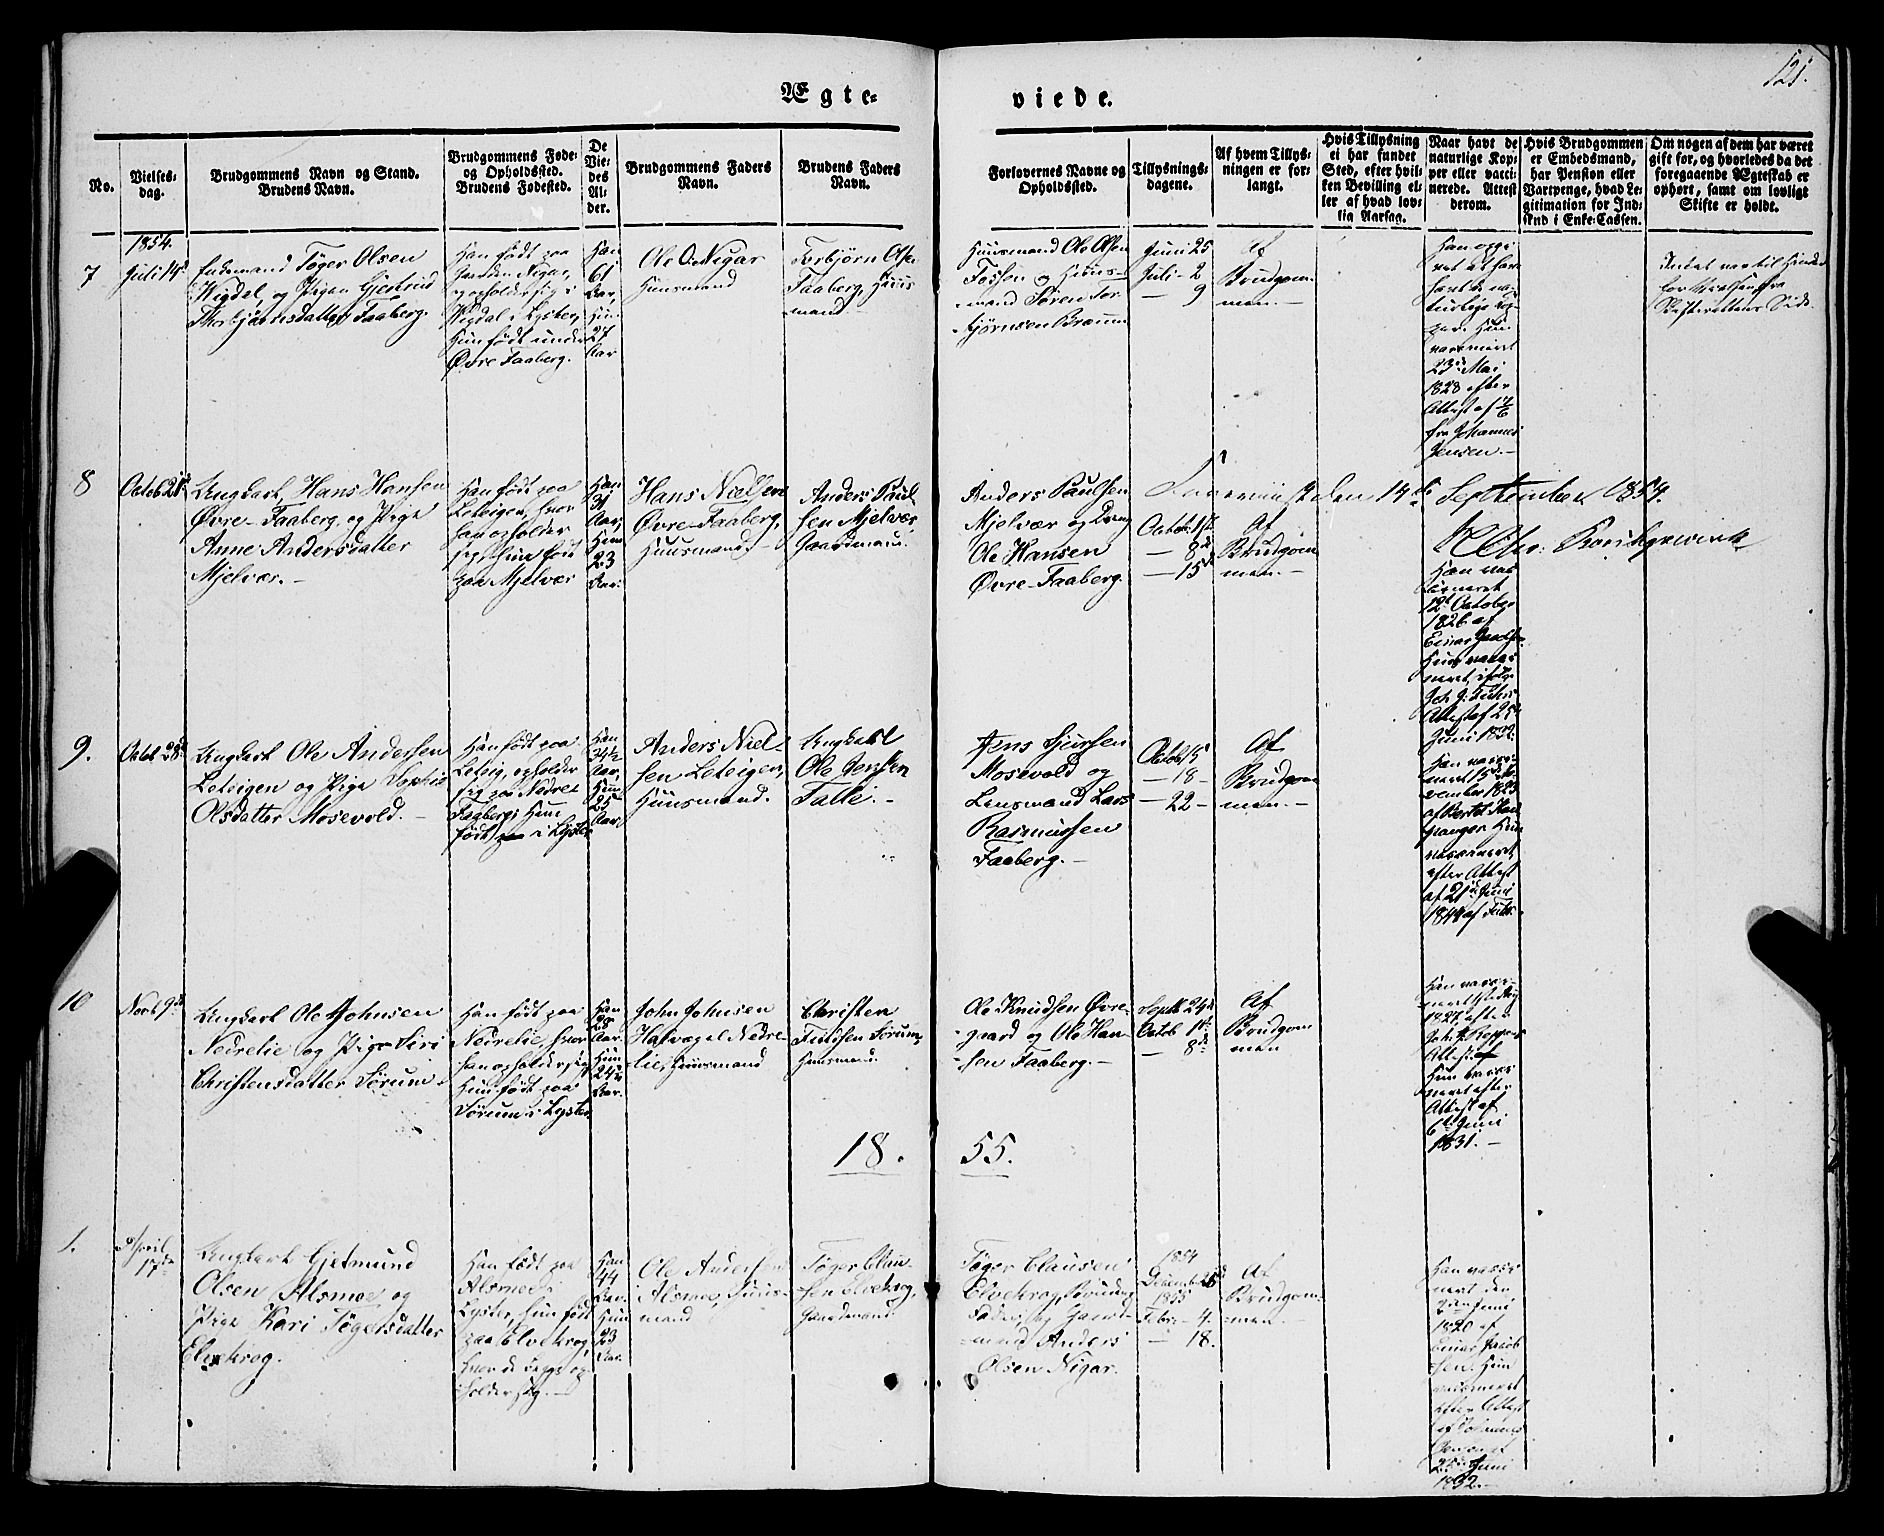 121.
Ægte-
viede.
No.
Vielses-
dag.
Brudgommens Navn og Stand.
Brudens Navn.
Brudgommens Føde-
og Opholdssted.
Brudens Fødested.
De
Vie-
des
Al-
der.
Brudgommens Faders
Navn.
Brudens Faders
Navn.
Forlovernes Navne og
Opholdssted.
Tillysnings-
dagene.
Af hvem Tillys-
ningen er for-
langt.
Hvis Tillysning
ei har fundet
Sted, efter hvil-
ken Bevilling el-
ler af hvad lov-
lig Aarsag.
Naar havt de
naturlige Kop-
per eller vacci-
nerede. Attest
derom.
Hvis Brudgommen
er Embedsmand,
har Pension eller
Vartpenge, hvad Le-
gitimation for Ind-
skud i Enke-Cassen.
Om nogen af dem har været
gift før, og hvorledes da det
foregaaende Ægteskab er
ophørt, samt om lovligt
Skifte er holdt.
1854.
7
Juli 14
Enkemand Tøger Olsen
Wigdal, og Pigen Gjertrud
Thorbjørnsdatter Faaberg.
Han født paa
Nigar,
opholder sig i
Wigdal i Lyster,
Hun født under
Øvre Faaberg.
Han
61
Aar,
Hun
27
Aar
Ole Nigar
Huusmand
Torbjørn Ols
Faaberg, Huus
mand
Huusmand Ole Olsen
Fossen og Huus-
mand Søren Tor
bjørnsen Bruun
Juni 25
Juli - 2
— 9
Af
Brudgom
men. —
Han opgi
vet at have
havt de na
turlige Kop
per. Hun
vaccineret
23de Mai
1828 efter
Attest af
fra Johannes
Jensen. —
Intet var til Hinder
for fra
Skifterettens Side
8
Octob 21
Ungkarl, Hans Hansen
Øvre-Faaberg, og Pige
Anne Andersdatter
Mjelvær. —
Han født paa
Leteigen, hvor
han opholder
sig, Hun født
paa Mjelvær
Han
31
Aar,
Hun
23
Aar.
Hans Nielsen
Øvre-Faaberg,
Huusmand. —
Anders Paul
sen Mjelvær
Gaardmand.
Anders Paulsen
Mjelvær og Dreng
Ole Hansen
Øvre-Faaberg.
Octob: 1ste
— 8de
— 15de
Af
Brudgom
men. —
den 14de September 1854.
Han vac
cineret
12 October
1826 af
Hun vacci
neret
Attest af 25
Juni 1832.
9.
Octob 28
Ungkarl Ole Andersen
Leteigen og Pige Sophie
Olsdatter Mosevold. —
Han født paa
Leteig, opholder
sig paa Nedre
Faaberg; Hun
født i Lyster
Han
34½
Aar,
Hun
25
Aar,
Anders Niel-
sen Leteigen,
Huusmand.
Ungkarl
Ole Jensen
Talle. —
Jens Sjursen
Mosevold og
Lensmand Lars
Rasmussen
Faaberg. —
Octob: 15
— 18 —
— 22 —
Af
Brudgom
men. —
Han vacci
neret 15de No
vember 1823
af
Hun
vaccineret
efter Attest
af 21de Juni
10
Novb 9de
Ungkarl Ole Johnsen
Nedrelie og Pige Siri
Christensdatter Sørum.
Han født paa
Nedrelie, hvor
han opholder sig
Hun født paa
Sørum i Lyster
Han
28
Aar.
Hun
24
Aar.
John Johnsen
Nedre
lie, Huusmand
Christen
Sørum,
Huusmand.
Ole Knudsen Øvre-
gaard og Ole Han-
sen Faaberg. —
Septb: 24de
Octob: 1ste
— 8de
Af
Brudgom
men
Han vacci
neret
1827, efter
Attest
Hun vacci
neret efter
Attest af
6te Juni
1831. —
18. 55.
1.
April
17de
Ungkarl Gjetmund
Olsen Alsmoe og
Pige Kari Tøgersdatter
Elvekrog.
Han født paa
Alsmoe i
Lyster, Hun født
paa Elvekrog,
hvor de begge op
holder sig. —
Han
44
Aar.
Hun
23
Aar.
Ole Andersen
Alsmoe, Huus-
mand
Tøger Clau-
sen Elvekrog,
Gaardmand
Tøger Clausen
Elvekrog, Brudens
Fader, og Gaard-
mand Anders
Olsen Nigar.
1854
December 26
1855
Febr: - 4.
— 18.
Af
Brudgom-
men.
Han vacci
neret den
Juni
1820 af
Einar Jacob
sen. Hun
vaccineret
efter Attest
af Johannes
Jensen af
Juni
1832. —